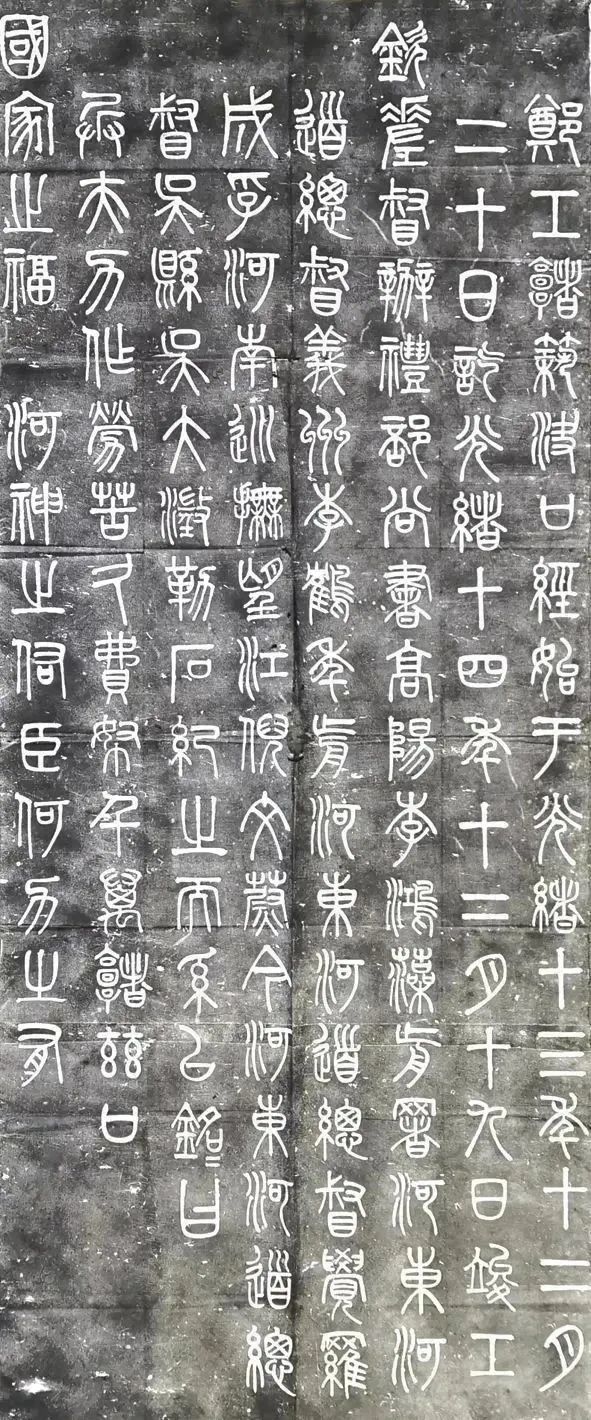 鄭工堵築決口經始于光緒十三年十二月
二十日訖光緒十四年十二月十九日竣工
欽差督辦禮部尚書高陽李鴻藻前署河東河
道總督義州李鶴年前河東河道總督覺羅
成孚河南巡撫望江倪文蔚今河東河道總
督吳縣吳大澂勒石紀之而系以銘〻曰
兵夫力作勞苦久費帑千萬堵茲口
國家之福 河神之佑臣何力之有